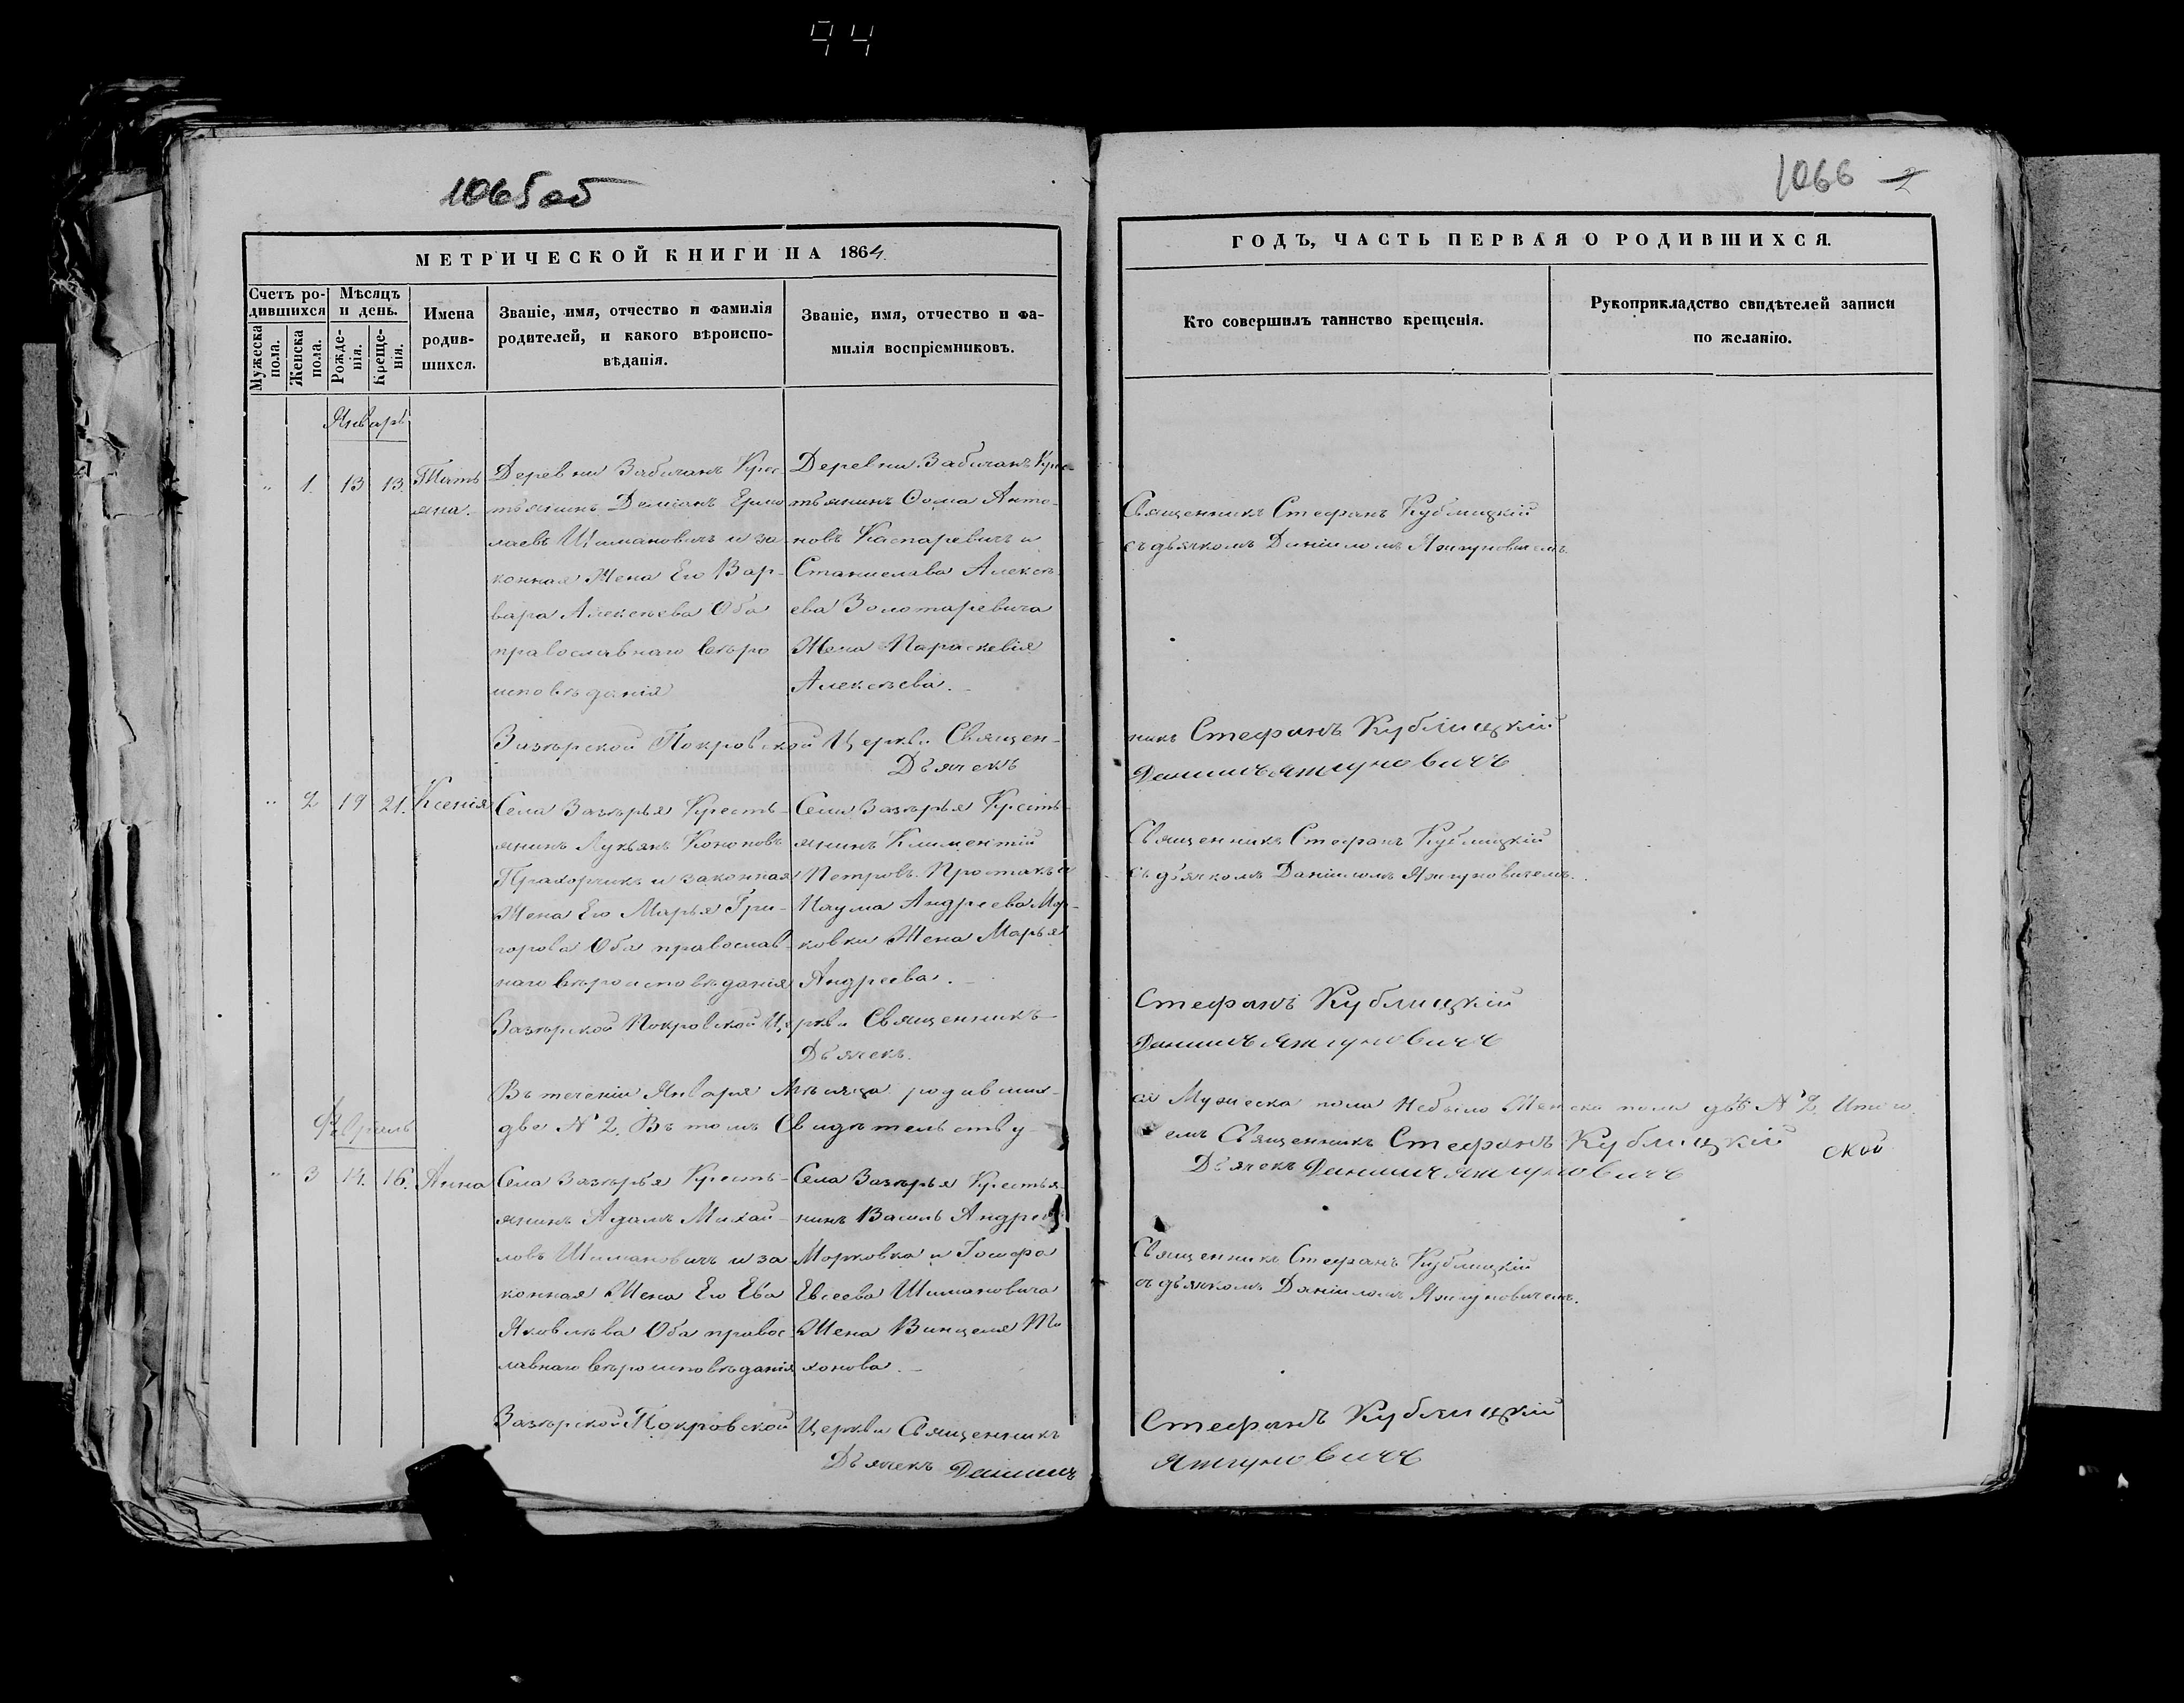 94
1065об
1066 2
МЕТРИЧЕСКОЙ КНИГИ НА 1864
Счетъ ро-
дившихся
Мужеска
пола.
Женска
пола.
Мѣсяцъ
и день.
Рожде-
нія.
Креще-
нія.
Имена
родив-
шихся.
Званіе, имя, отчество и фамилія
родителей, и какого вѣроиспо-
вѣданія.
Званіе, имя, отчество и фа-
милія воспріемниковъ.
ГОДЪ, ЧАСТЬ ПЕРВАЯ О РОДИВШИХСЯ.
Кто совершилъ таинство крещенія.
Рукоприкладство свидѣтелей записи
по желанію.
Январь
" 1. 13 13.
Тать
яна.
Деревни Забичанъ Крес
тьянинъ Деміанъ Ермо
лаевъ Шимановичъ и за
конная Жена Его Вар-
вара Алексѣева Оба
православнаго вѣро
исповѣданія
Деревни Забичанъ Крес
тьянинъ Ѳома Анто-
новъ Каспаревичъ и
Станислава Алексѣ
ева Золотаревича
Жена Параскевія
Алексѣева.
Священникъ Стефанъ Кублицкій
съ дьячкомъ Даніиломъ Яжгуновичемъ.
Зазѣрской Покровской Церкви Священ-
никъ Стефанъ Кублицкій
Дьячекъ
Даниилъ Яжгуновичъ
" 2 19 21. Ксенія
Села Зазѣрья Кресть-
янинъ Лукьянъ Кононовъ
Прахорчикъ и законная
Жена Его Марья Гри-
горова Оба православ-
наго вѣроисповѣданія
Села Зазѣрья Кресть-
янинъ Климентій
Петровъ Простакъ и
Наума Андреева Мор-
ковки Жена Марья
Андреева.
Священникъ Стефанъ Кублицкій
съ дьячкомъ Даніиломъ Яжгуновичемъ.
Зазѣрской Покровской Церкви Священникъ
Стефанъ Кублицкій
Дьячекъ.
Даниилъ Яжгуновичъ
Въ теченіи Января Мѣсяца родивших-
ся Мужеска пола Небыло Женска пола двѣ № 2. Итого
две № 2. Въ томъ Свидѣтельству-
емъ Священникъ Стефанъ Кублицкій
Дьячекъ Даниилъ Яжгуновичъ
ской
Февраль
" 3 14. 16. Анна
Села Зазѣрья Кресть-
янинъ Адамъ Михай-
ловъ Шимановичъ и за
конная Жена Его Ева
Яковлева Оба правос-
лавнаго вѣроисповѣданія
Села Зазѣрья Крестья
нинъ Василь Андреев
Морковка и Іосифа
Евсеева Шимановича
Жена Винцеля Ти
хонова.
Священникъ Стефанъ Кублицкій
съ дьячкомъ Даніиломъ Яжгуновичемъ.
Зазѣрской Покровской Церкви Священникъ
Стефанъ Кублицкій
Дьячекъ Даниилъ
Яжгуновичъ